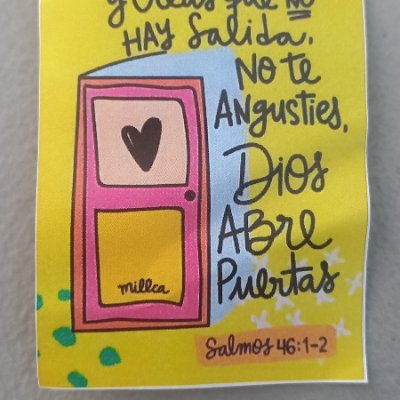 y creas que no
HAY Salida.
NO te
ANgusties,
Dios
ABre
Puertas
millca
Salmos 46:1-2